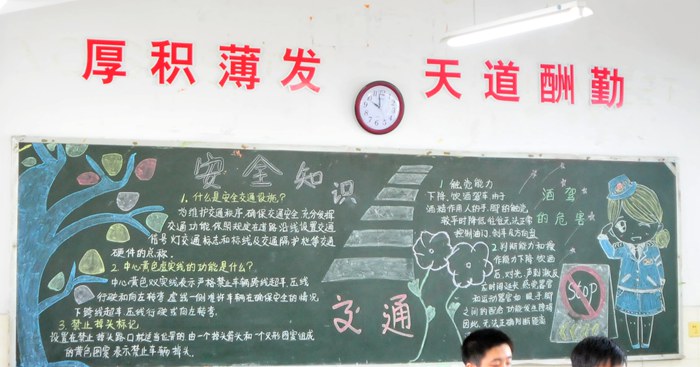 厚积薄发
天道酬勤
安全知识
1. 什么是安全交通设施?
为维护交通秩序,确保交通安全,充分发挥
交通功能,依照规定在道路沿线设置交通
信号灯,交通标志和标线及交通隔护栏等交通
硬件的总称.
2. 中心黄色虚实线的功能是什么?
中心黄色双实线表示严格禁止车辆跨线超车,压线
行驶和向左转弯.虚线一侧准许车辆在确保安全的情况
下跨线超车,压线行驶或向左转弯.
3. 禁止掉头标记
设置在禁止掉头路口前适当位置的由一个掉头箭头和一个叉形图案组成
的黄色图案 表示禁止车辆掉头.
交通
1 触觉能力
下降,饮酒驾车,由于
酒精作用,人的手、脚的触觉
较平时降低,往往无法正常
控制油门、刹车及方向盘
2 判断能力和操
作能力下降 饮酒
后,对光、声刺激反
应时间延长,
无法正确判断距离
酒驾
的危害
STOP